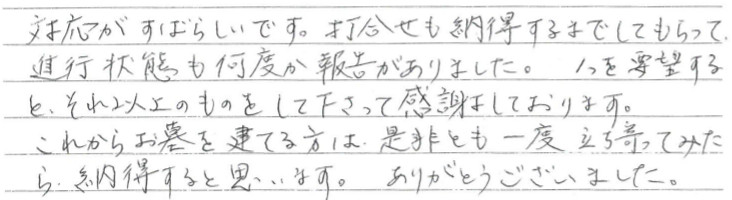 対応がすばらしいです。打合せも納得するまでしてもらって、
進行状態も何度か報告がありました。 1つを要望する
と、それ以上のものをして下さって感謝しております。
これからお墓を建てる方は、是非とも一度立ち寄ってみた
ら、納得すると思います。 ありがとうございました。